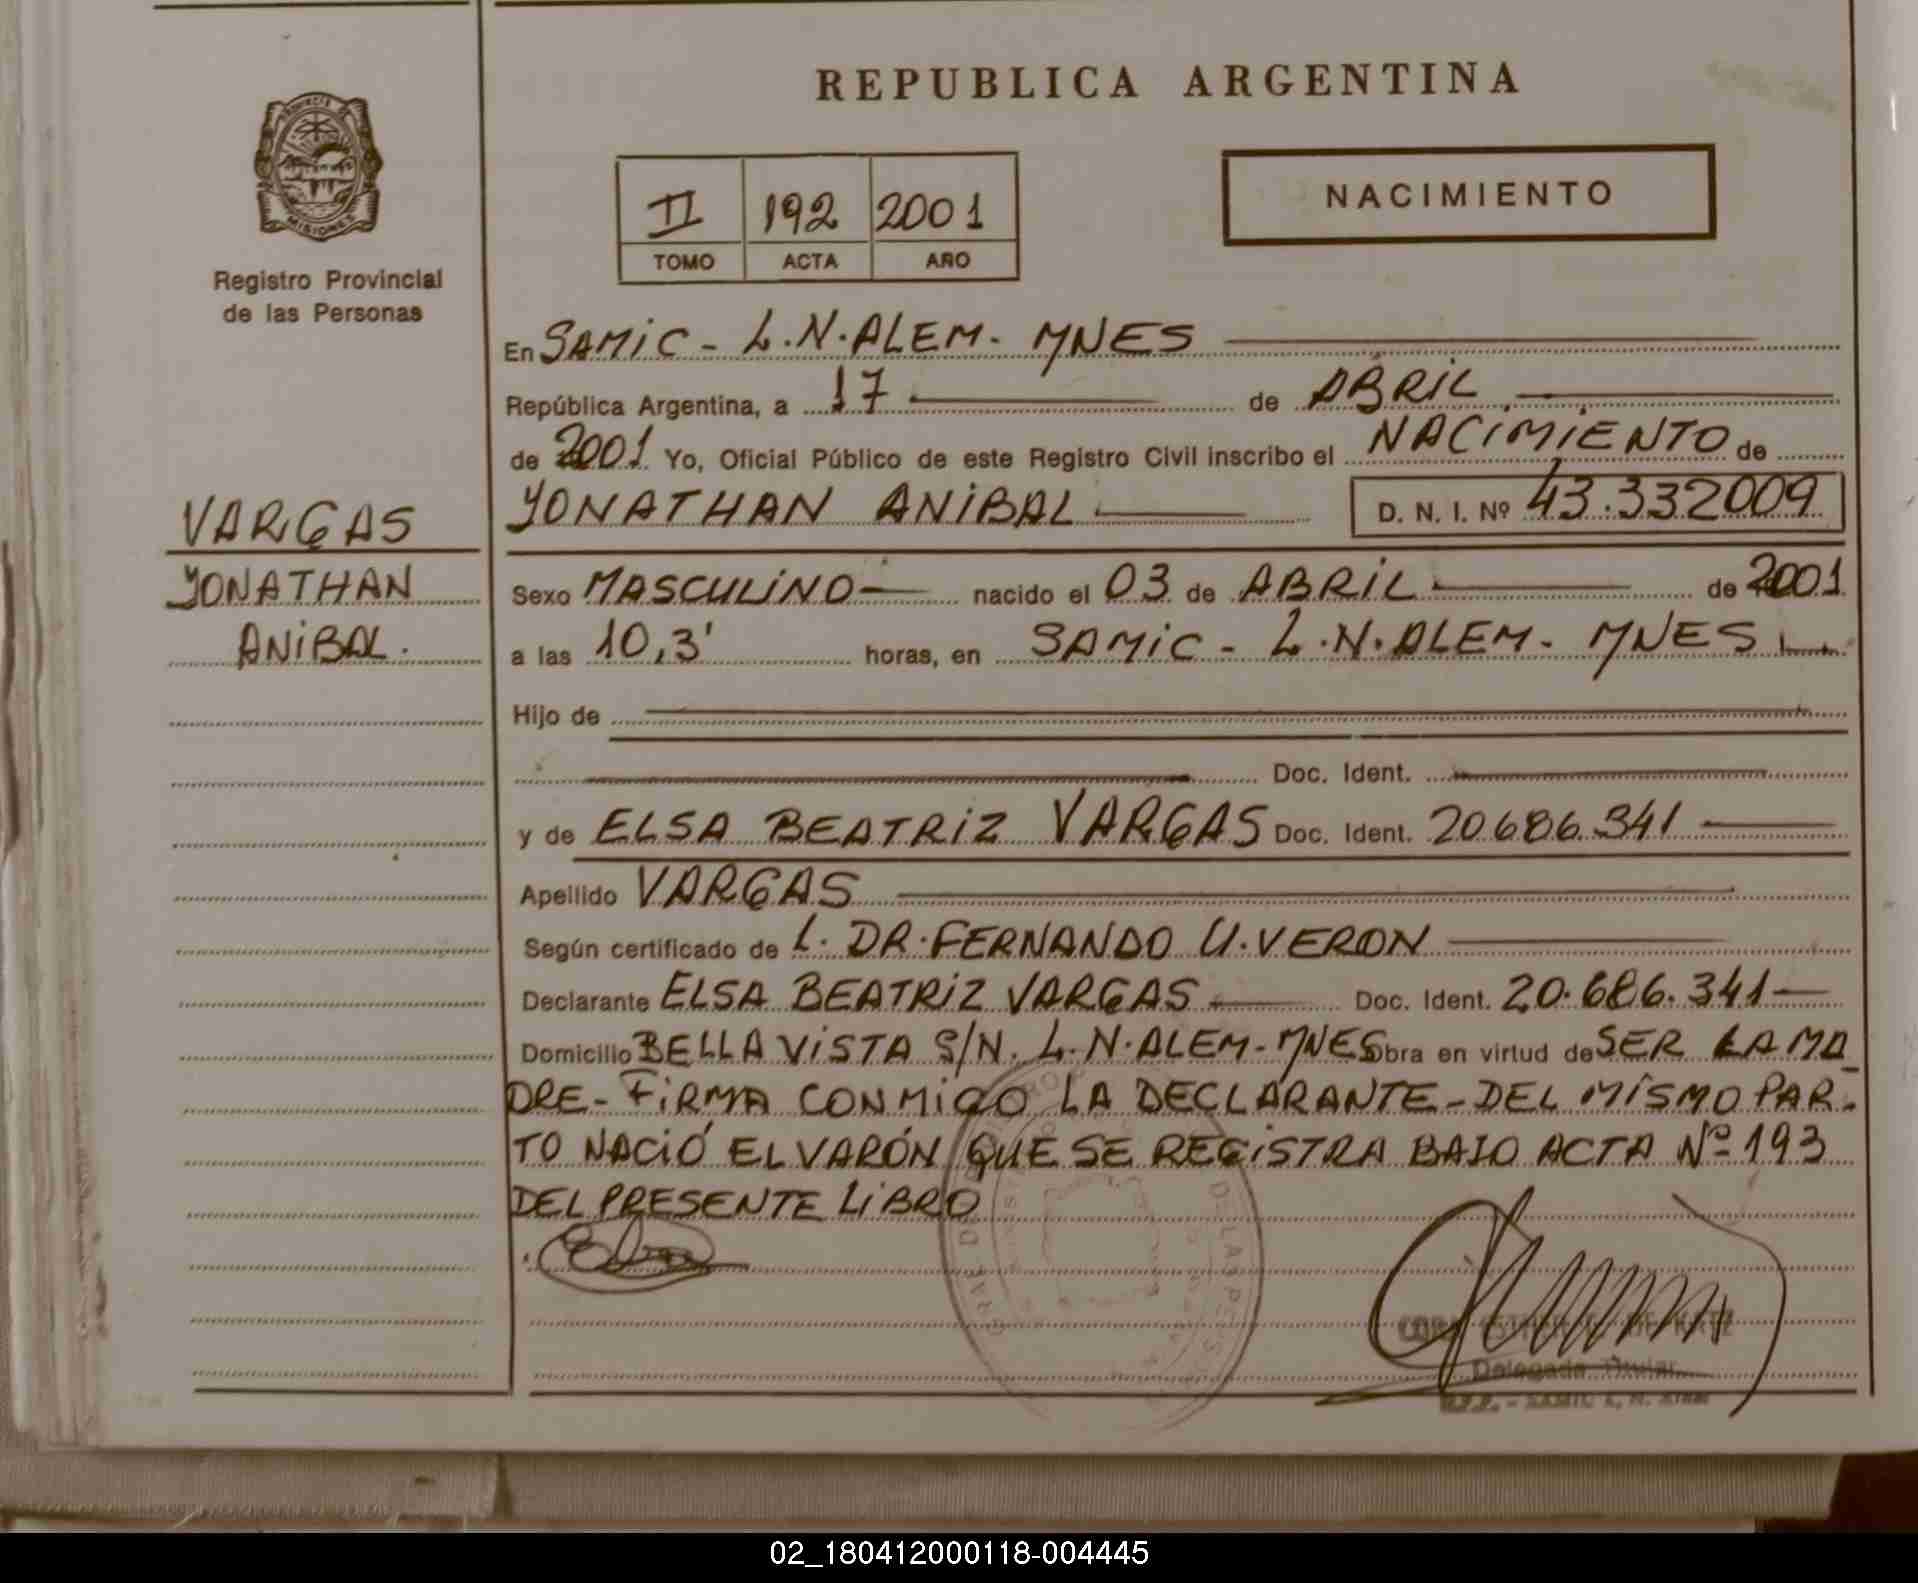 REPUBLICA ARGENTINA
PROVINCIA DE
MISIONES
Registro Provincial
de las Personas
II 192 2001
TOMO ACTA AÑO
NACIMIENTO
En SAMIC - L.N.ALEM. MNES
República Argentina, a 17 de ABRIL
de 2001 Yo, Oficial Público de este Registro Civil inscribo el NACIMIENTO de
YONATHAN ANIBAL D. N. I. Nº 43.332009
VARGAS
YONATHAN
ANIBAL.
Sexo MASCULINO nacido el 03 de ABRIL de 2001
a las 10,3' horas, en SAMIC - L.N.ALEM. MNES
Hijo de
Doc. Ident.
y de ELSA BEATRIZ VARGAS Doc. Ident. 20.686.341
Apellido VARGAS
Según certificado de L. DR. FERNANDO U. VERON
Declarante ELSA BEATRIZ VARGAS Doc. Ident. 20.686.341
Domicilio BELLA VISTA S/N. L.N.ALEM-MNES Obra en virtud de SER LA MA
DRE - FIRMA CONMIGO LA DECLARANTE - DEL MISMO PAR-
TO NACIÓ EL VARÓN QUE SE REGISTRA BAJO ACTA Nº 193
DEL PRESENTE LIBRO
DE KATZ
Delegada Titular
R.P.P. - SAMIC L. N. Alem
02_180412000118-004445